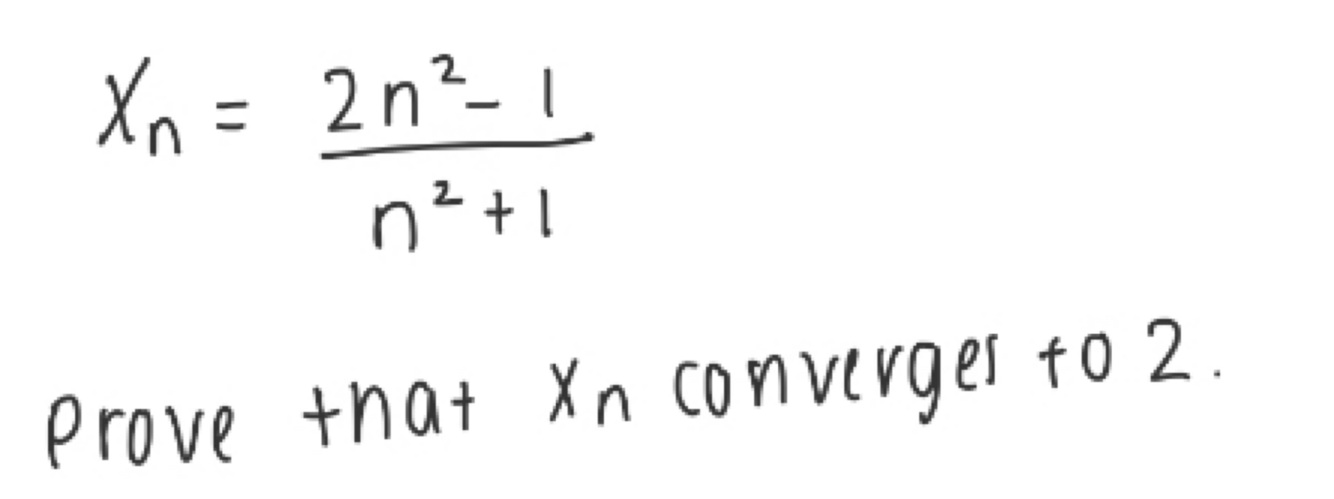 Xn = 2n² - 1
n² + 1
Prove that Xn converges to 2.